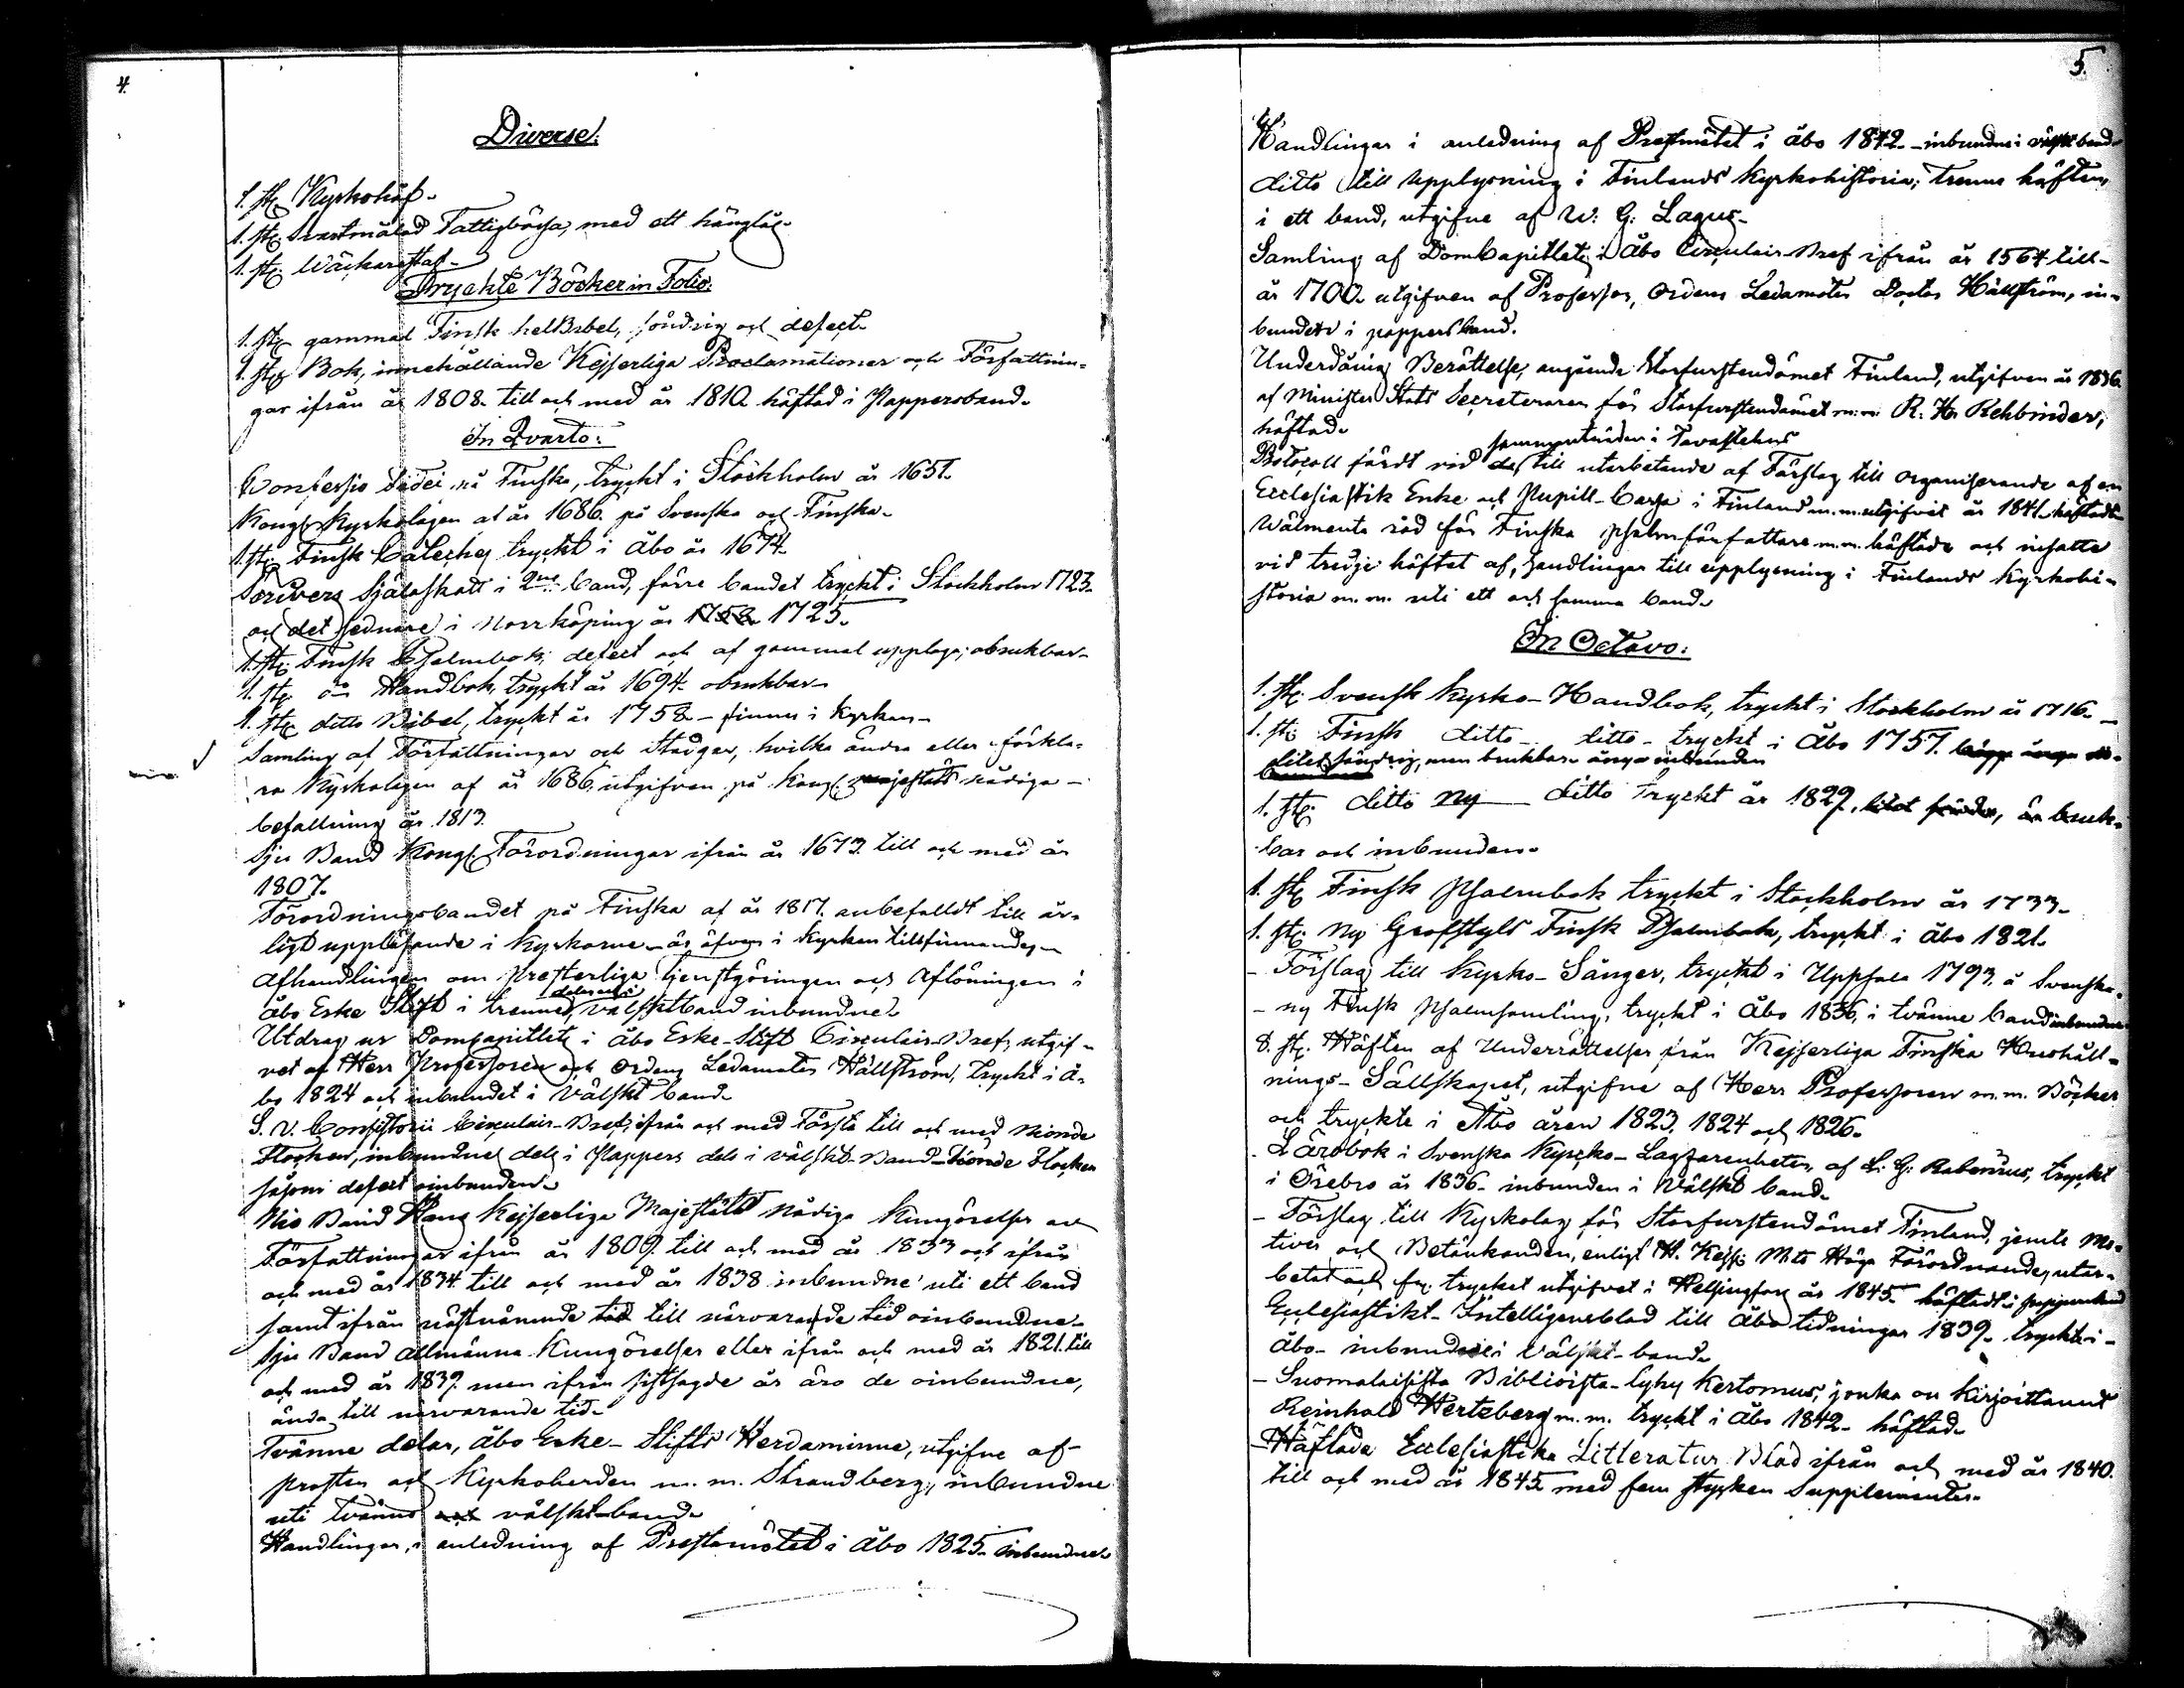 4.
Diverse.
1. st. Kyrkohåf.
1. st. Svartmålad Fattigbössa, med ett hänglås.
1. st. Wäckarestaf.
Tryckte Böcker in Folio.
1. st. gammal Finsk helBibel, söndrig och defect.
1. st. Bok, innehållande Kejserliga Proclamationer och Författnin-
gar ifrån år 1808. till och med år 1810. häftad i Pappersband.
In Qvarto:
Confessio Fidei på Finska, tryckt i Stockholm år 1651.
Kongl. Kyrkolagen af år 1686. på Svenska och Finska.
1. st. Finsk Cateches tryckt i Åbo år 1674.
Scrivers Själaskatt i 2ne band, förre bandet tryckt i Stockholm 1723.
och det sednare i Norrköping år 1758. 1725.
1. st. Finsk Psalmbok, defect och af gammal upplaga, obrukbar.
1. st. Handbok, tryckt år 1694. obrukbar.
1. st. ditto Bibel, tryckt år 1758. finnes i Kyrkan.
Samling af Författningar och Stadgar, hvilka ändra eller förkla-
ra Kyrkolagen af år 1686. utgifven på Kongl. Majestäts nådiga
befallning år 1813.
Sju Band Kongl. Förordningar ifrån år 1673. till och med år
1807.
Förordningsbandet på Finska af år 1817. anbefalldt till år-
ligt uppläsande i Kyrkorne är äfven i Kyrkan tillfinnandes
Afhandlingen om Presterliga Tjenstgöringen och Aflöningen i
Åbo Erke Stift i trenne delar uti välskt band inbundne.
Utdrag ur Domkapitlets i Åbo Erke-Stift Circulair-Bref, utgif-
vet af Herr Professoren och Ordens Ledamoten Hällström, tryckt i Å-
bo 1824 och inbundet i Välskt band.
S. V. Consistorii Circulair-Bref ifrån och med Första till och med Nionde
Flocken, inbundne dels i Pappers dels i välskt Band. Tionde Flocken
såsom defect oinbunden.
Nio Band Hans Kejserliga Majestäts Nådiga Kungörelser och
Författningar ifrån år 1809. till och med år 1833 och ifrån
och med år 1834. till och med år 1838 inbundne uti ett band
samt ifrån nästnämnde tid till närvarande tid oinbundne.
Sju Band Allmänna Kungörelser eller ifrån och med år 1821. till
och med år 1839. men ifrån sistsagde år äro de oinbundne,
ända till närvarande tid.
Tvänne delar, Åbo Erke-Stifts Herdaminne, utgifne af
prosten och Kyrkoherden m. m. Strandberg, inbundne
uti tvänne välskt-band.
Handlingar, i anledning af Prestamötet i Åbo 1825. inbundne.
5.
Handlingar i anledning af Prestmötet i Åbo 1842. inbundne i välskt band
ditto till Upplysning i Finlands Kyrkohistoria, Trenne häften,
i ett band, utgifne af W. G. Lagus.
Samling af DomCapitlets i Åbo Circulair-Bref ifrån år 1564. till
år 1700. utgifven af Professor, Ordens Ledamoten Doctor Hällström, in-
bunden i pappersband.
Underdånig Berättelse, angående Storfurstendömet Finland, utgifven år 1836.
af Minister Stats Secreteraren för Storfurstendömet m. m. R. H. Rehbinder,
häftad.
sammanträden i Tavastehus
Protocoll fördt vid de till utarbetande af Förslag till organiserande af en
Ecclesiastik Enke och Pupill-Cassa i Finland m. m. utgifvet år 1841. häftadt.
Wälmenta råd för Finska psalmförfattare m. m. häftade och insatte
vid tredje häftet af, Handlingar till upplysning i Finlands Kyrkohi-
storia m. m. uti ett och samma band.
In Octavo:
1. st. Svensk Kyrko-Handbok, tryckt i Stockholm år 1716.
1. st. Finsk ditto ditto tryckt i Åbo 1757.
litet söndrig, men brukbar
1. st. ditto Ny ditto Tryckt år 1829. är bruk-
bar och inbunden.
1. st. Finsk Psalmbok tryckt i Stockholm år 1733.
1. st. Ny Grofstyls Finsk Psalmbok, tryckt i Åbo 1821.
- Förslag till Kyrko-Sånger, tryckt i Uppsala 1793. å Svenska.
- ny Finsk Psalmsamling, tryckt i Åbo 1836, i tvänne band inbundne
8. st. Häften af Underrättelser från Kejserliga Finska Hushåll-
nings-Sällskapet, utgifne af Herr Professoren m. m. Böcker
och tryckte i Åbo åren 1823. 1824 och 1826.
Lärobok i Svenska Kyrko-Lagfarenheten, af L. G. Rabenius, tryckt
i Örebro år 1836. inbunden i Välskt band.
- Förslag till Kyrkolag för Storfurstendömet Finland, jemte Mo-
tiver och Betänkanden, enligt H. Kejs. M:ts Höga Förordnande, utar-
betat och fr. trycket utgifvet i Helsingfors år 1845. häftadt i pappersband
Ecclesiastikt-Intelligensblad till Åbo tidningar 1839. tryckt i
Åbo inbundne i Välskt-band.
- Suomalaisista Biblioista lyhy Kertomus, jonka on Kirjoittanut
Reinhold Hertzberg m. m. tryckt i Åbo 1842. häftad.
- Häftade Ecclesiastika Litteratur Blad ifrån och med år 1840.
till och med år 1845 med fem stycken Supplementer.